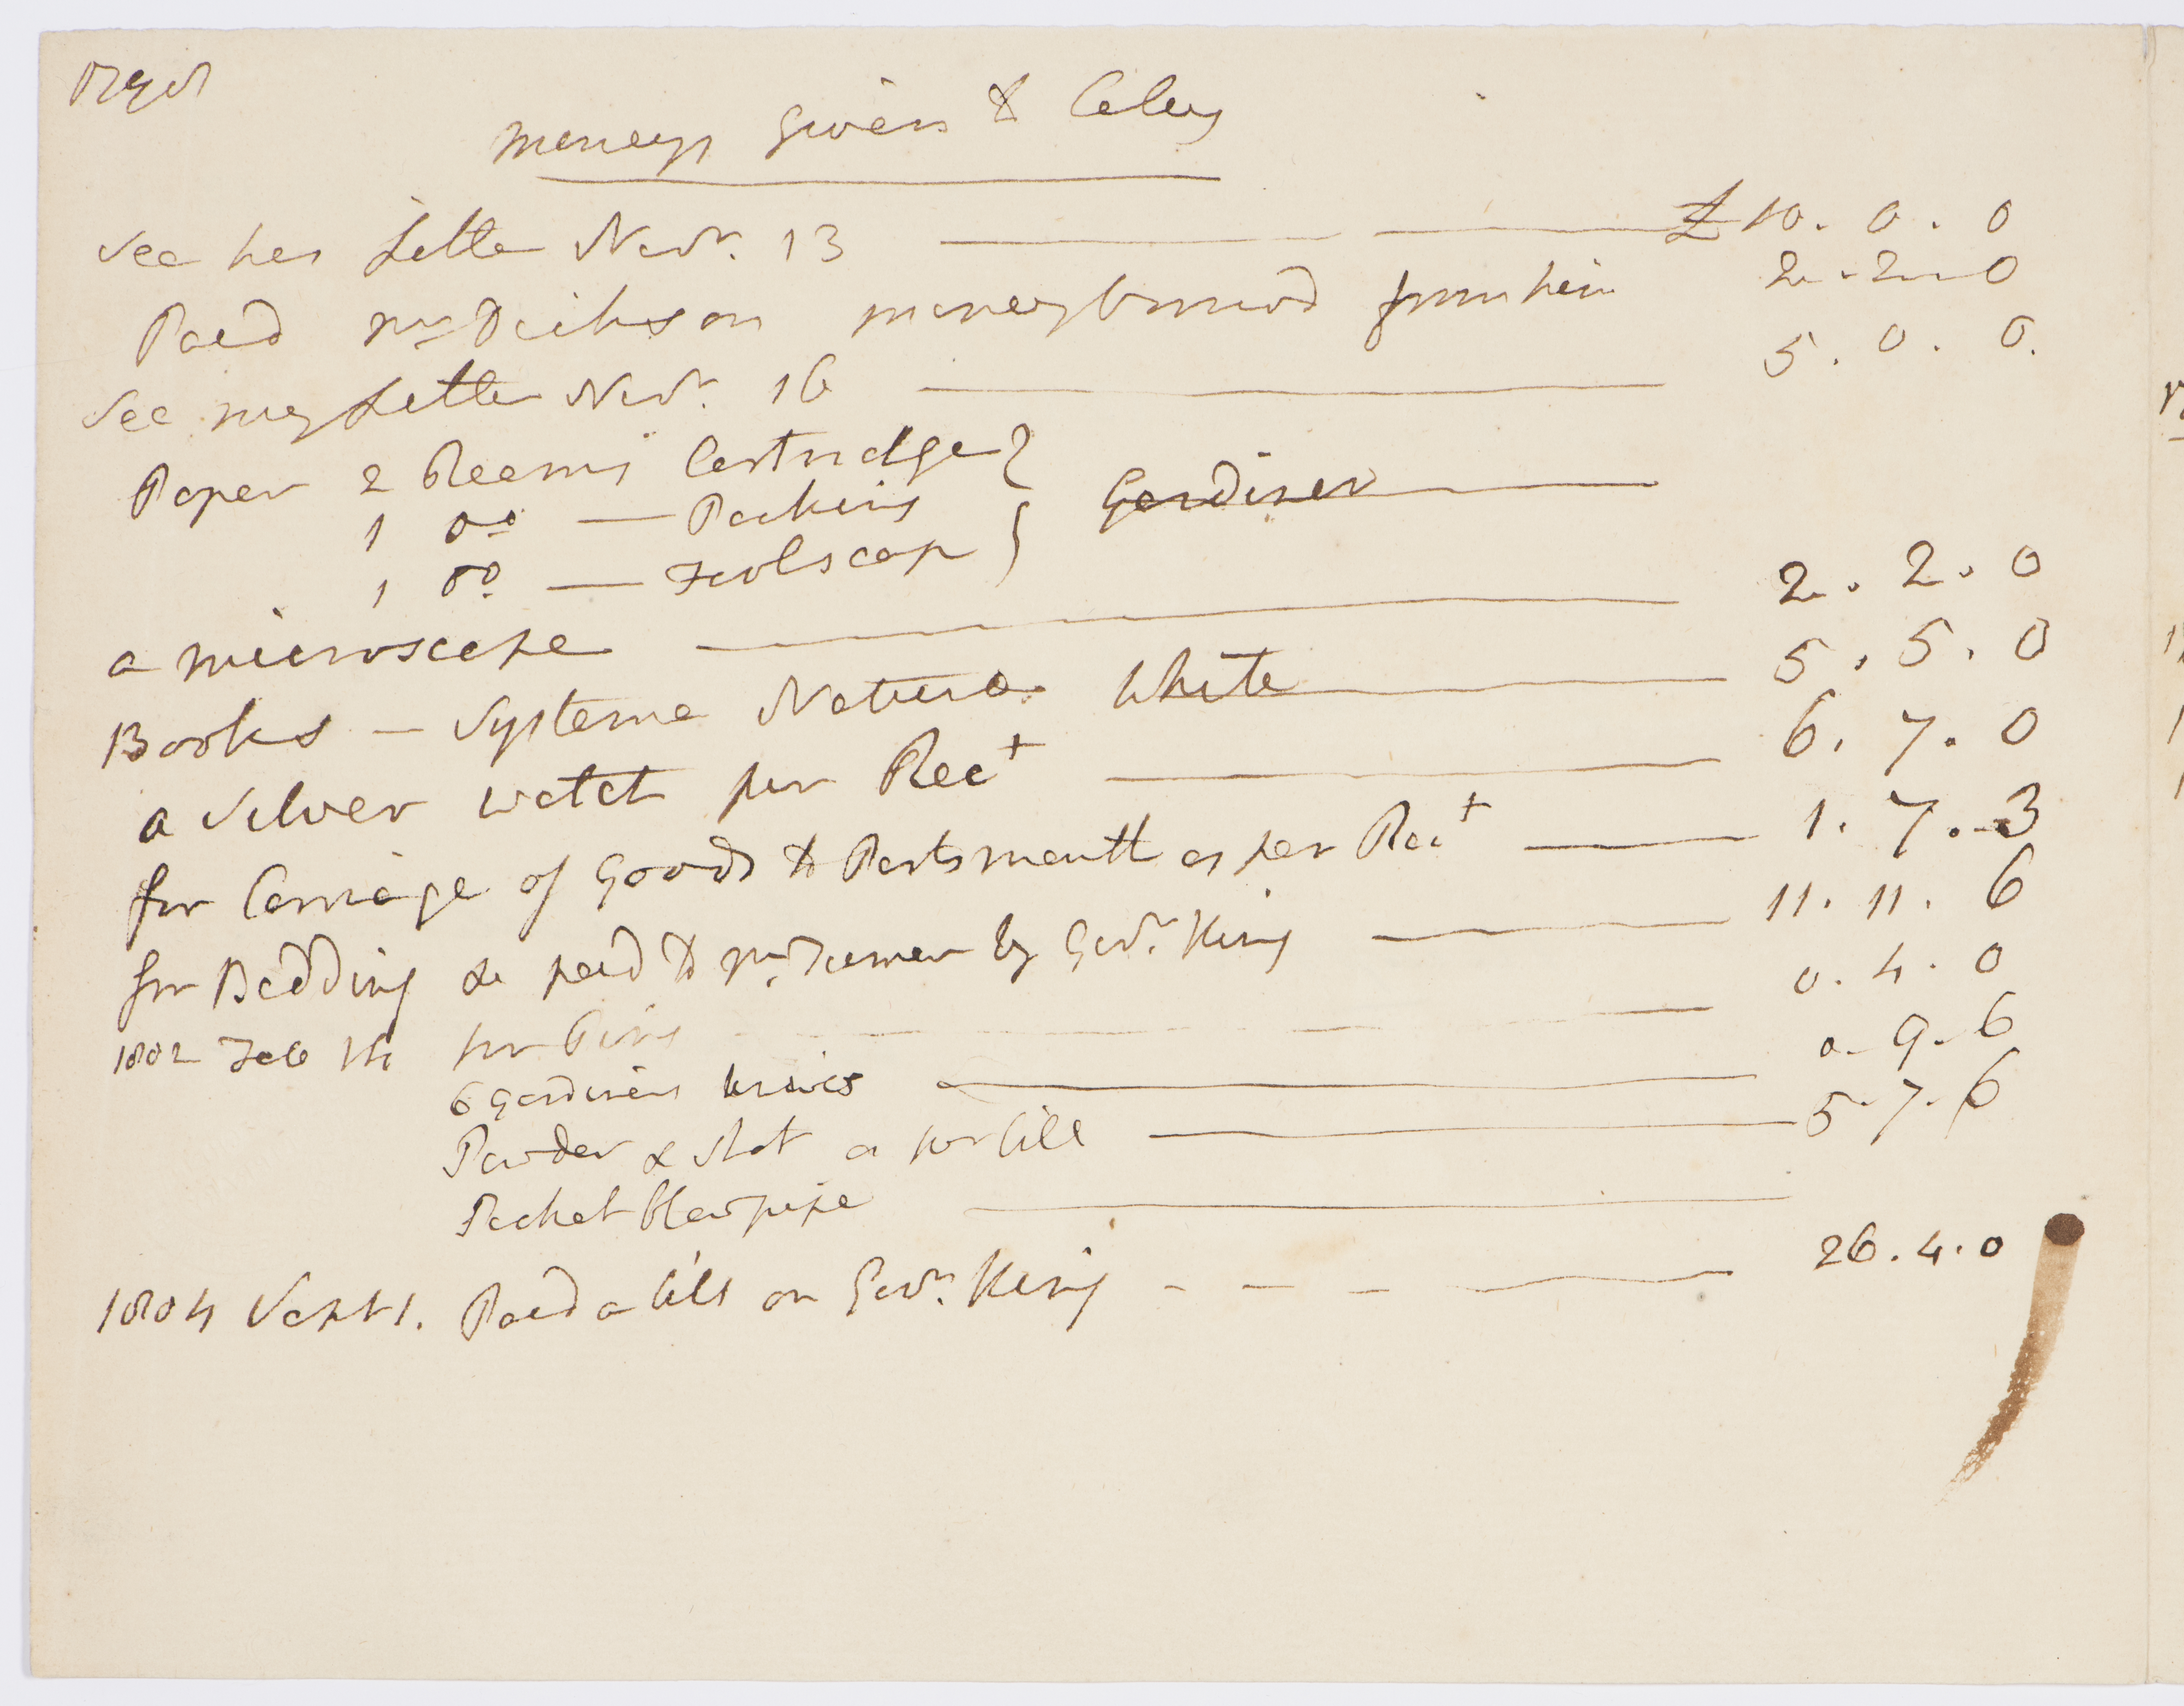 1798
Moneys Given to Caley
See his Letter Novr. 13 £ 10. 0. 0
Paid Mr Dickson money borrowd from him 2. 2. 0
See my Letter Novr. 16 5. 0. 0.
Paper 2 Reams Cartridge
1 Do — Packing Gardiner
1 Do — Foolscap
a microscope 2. 2. 0
Books — Systema Natura White 5. 5. 0
a Silver watch per Rect 6. 7. 0
for Carriage of Goods to Portsmouth as per Rect 1. 7. 3
for Bedding &c paid to Mr by Govr. King 11. 11. 6
1802 Feb for Pins 0. 4. 0
6 Gardiners knives 0. 9. 6
Powder & Shot as per bill 5. 7. 6
Pocket Blowpipe
1804 Sept 1. Paid a bill on Govr. King - - - 26. 4. 0